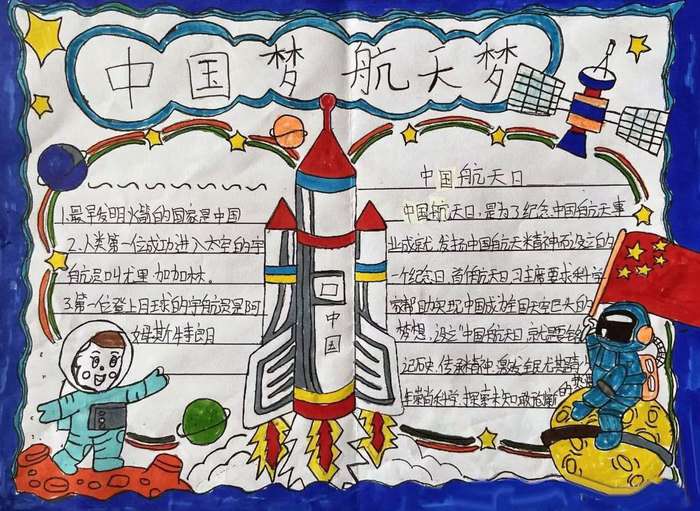 中国梦 航天梦
1.最早发明火箭的国家是中国
2.人类第一位成功进入太空的宇
航员叫尤里·加加林.
3.第一位登上月球的宇航员是阿
姆斯特朗
中国
中国航天日
中国航天日,是为了纪念中国航天事
业成就,发扬中国航天精神而设立的
一个纪念日.首个航天日习主席要求科学
家帮助实现中国成为全国太空巨大的
梦想,设立"中国航天日,就是要铭
记历史,传承精神,激发全民尤其青
年崇尚科学,探索未知敢于